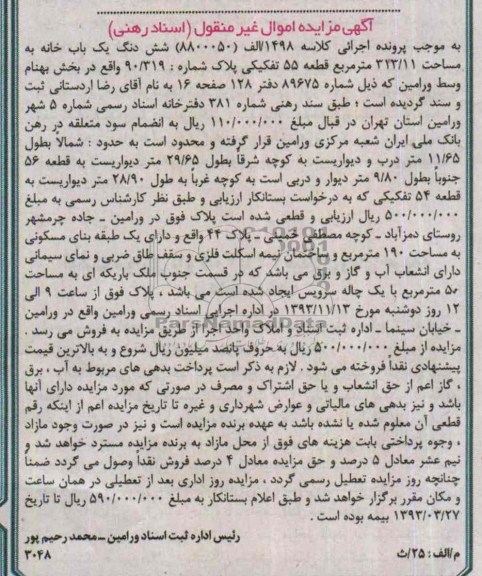 آگهی مزایده اموال غیر منقول (اسناد رهنی)
به موجب پرونده اجرائی کلاسه ۱۴۹۸/الف (۸۸۰۰۰۵۰) شش دنگ یک باب خانه به
مساحت ۳۲۳/۱۱ مترمربع قطعه ۵۵ تفکیکی پلاک شماره : ۹۰/۳۱۹ واقع در بخش بهنام
وسط ورامین که ذیل شماره ۸۹۶۷۵ دفتر ۱۲۸ صفحه ۱۶ به نام آقای رضا اردستانی ثبت
و سند گردیده است ؛ طبق سند رهنی شماره ۳۸۱ دفترخانه اسناد رسمی شماره ۵ شهر
ورامین استان تهران در قبال مبلغ ۱۱۰/۰۰۰/۰۰۰ ریال به انضمام سود متعلقه در رهن
بانک ملی ایران شعبه مرکزی ورامین قرار گرفته و محدود است به حدود : شمالاً بطول
۱۱/۶۵ متر درب و دیواریست به کوچه شرقاً بطول ۲۹/۶۵ متر دیواریست به قطعه ۵۶
جنوباً بطول ۹/۸۰ متر دیوار و دربی است به کوچه غرباً به طول ۲۸/۹۰ متر دیواریست به
قطعه ۵۴ تفکیکی که به درخواست بستانکار ارزیابی و طبق نظر کارشناس رسمی به مبلغ
۵۰۰/۰۰۰/۰۰۰ ریال ارزیابی و قطعی شده است پلاک فوق در ورامین ـ جاده چرمشهر
روستای دمزآباد ـ کوچه مصطفی خمینی ـ پلاک ۴۴ واقع و دارای یک طبقه بنای مسکونی
به مساحت ۱۹۰ مترمربع و ساختمان نیمه اسکلت فلزی و سقف طاق ضربی و نمای سیمانی
دارای انشعاب آب و گاز و برق می باشد که در قسمت جنوب ملک باریکه ای به مساحت
۵۰ مترمربع با یک چاله سرویس ایجاد شده است می باشد ، پلاک فوق از ساعت ۹ الی
۱۲ روز دوشنبه مورخ ۱۳۹۳/۱۱/۱۳ در اداره اجرای اسناد رسمی ورامین واقع در ورامین
ـ خیابان سینما ـ اداره ثبت اسناد و املاک واحد اجرا از طریق مزایده به فروش می رسد .
مزایده از مبلغ ۵۰۰/۰۰۰/۰۰۰ ریال به حروف پانصد میلیون ریال شروع و به بالاترین قیمت
پیشنهادی نقداً فروخته می شود . لازم به ذکر است پرداخت بدهی های مربوط به آب ، برق
، گاز اعم از حق انشعاب و یا حق اشتراک و مصرف در صورتی که مورد مزایده دارای آنها
باشد و نیز بدهی های مالیاتی و عوارض شهرداری و غیره تا تاریخ مزایده اعم از اینکه رقم
قطعی آن معلوم شده یا نشده باشد به عهده برنده مزایده است و نیز در صورت وجود مازاد
، وجوه پرداختی بابت هزینه های فوق از محل مازاد به برنده مزایده مسترد خواهد شد و
نیم عشر معادل ۵ درصد و حق مزایده معادل ۴ درصد فروش نقداً وصول می گردد ضمناً
چنانچه روز مزایده تعطیل رسمی گردد ، مزایده روز اداری بعد از تعطیلی در همان ساعت
و مکان مقرر برگزار خواهد شد و طبق اعلام بستانکار به مبلغ ۵۹۰/۰۰۰/۰۰۰ ریال تا تاریخ
۱۳۹۳/۰۳/۲۷ بیمه بوده است .
رئیس اداره ثبت اسناد ورامین ـ محمد رحیم پور
م/الف : ۲۵/ث ۳۰۴۸